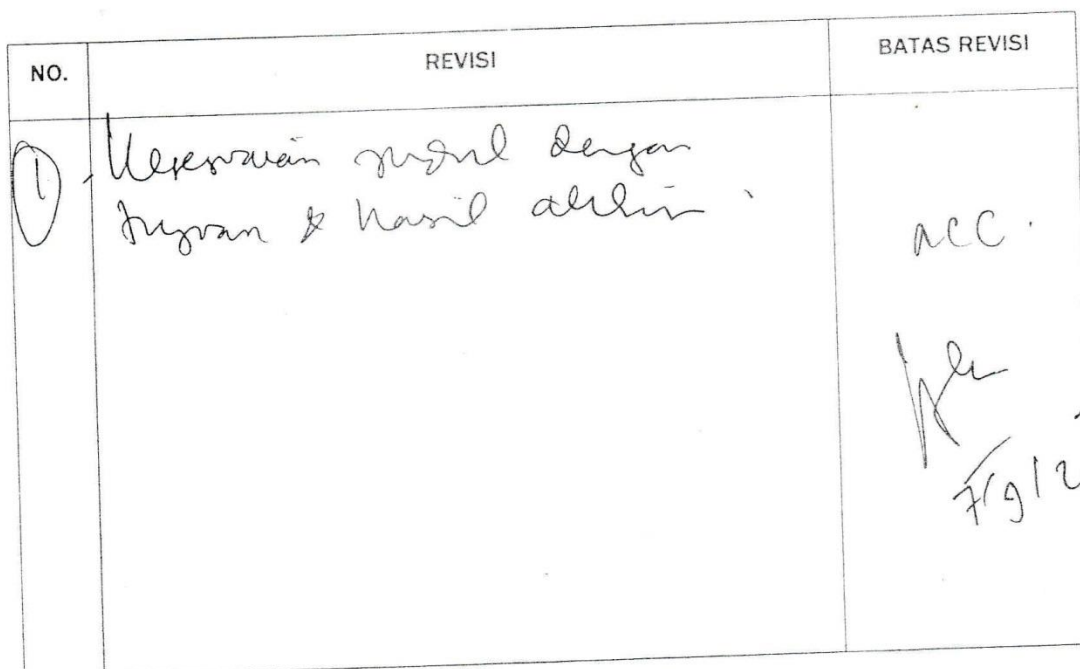 NO. REVISI BATAS REVISI
1. Kesesuaian judul dengan
tujuan & hasil akhir.
acc.